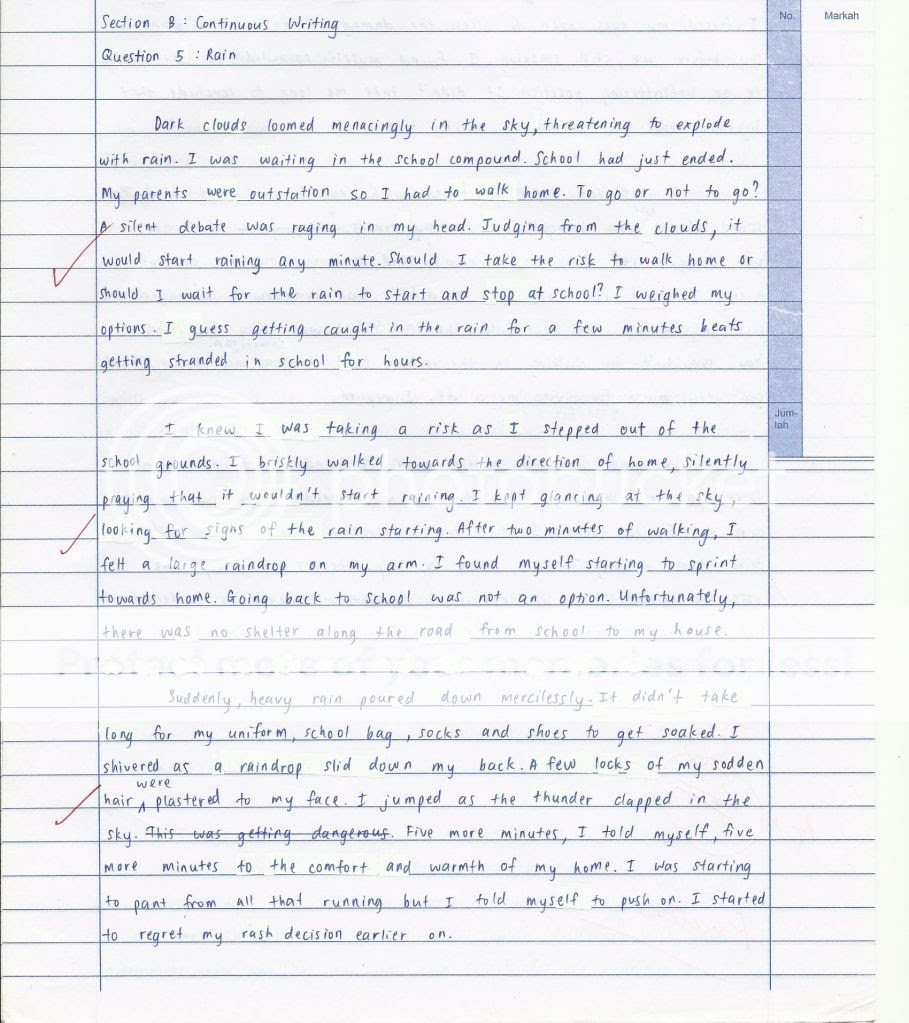 No.
Markah
Section B : Continuous Writing
Question 5 : Rain
Dark clouds loomed menacingly in the sky, threatening to explode
with rain. I was waiting in the school compound. School had just ended.
My parents were outstation so I had to walk home. To go or not to go?
A silent debate was raging in my head. Judging from the clouds, it
would start raining any minute. Should I take the risk to walk home or
should I wait for the rain to start and stop at school? I weighed my
options. I guess getting caught in the rain for a few minutes beats
getting stranded in school for hours.
Jum-
lah
I knew I was taking a risk as I stepped out of the
school grounds. I briskly walked towards the direction of home, silently
praying that it wouldn't start raining. I kept glancing at the sky,
looking for signs of the rain starting. After two minutes of walking, I
felt a large raindrop on my arm. I found myself starting to sprint
towards home. Going back to school was not an option. Unfortunately,
there was no shelter along the road from school to my house.
Suddenly, heavy rain poured down mercilessly. It didn't take
long for my uniform, school bag, socks and shoes to get soaked. I
shivered as a raindrop slid down my back. A few locks of my sodden
hair were plastered to my face. I jumped as the thunder clapped in the
sky. This was getting dangerous. Five more minutes, I told myself, five
more minutes to the comfort and warmth of my home. I was starting
to pant from all that running but I told myself to push on. I started
to regret my rash decision earlier on.